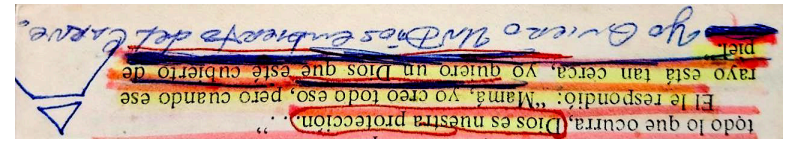 todo lo que ocurra, Dios es nuestra protección. . .”
El le respondió: “Mamá, yo creo todo eso, pero cuando ese
rayo está tan cerca, yo quiero un Dios que esté cubierto de
piel”.
Yo Quiero Un Dios Cubierto del Carne.